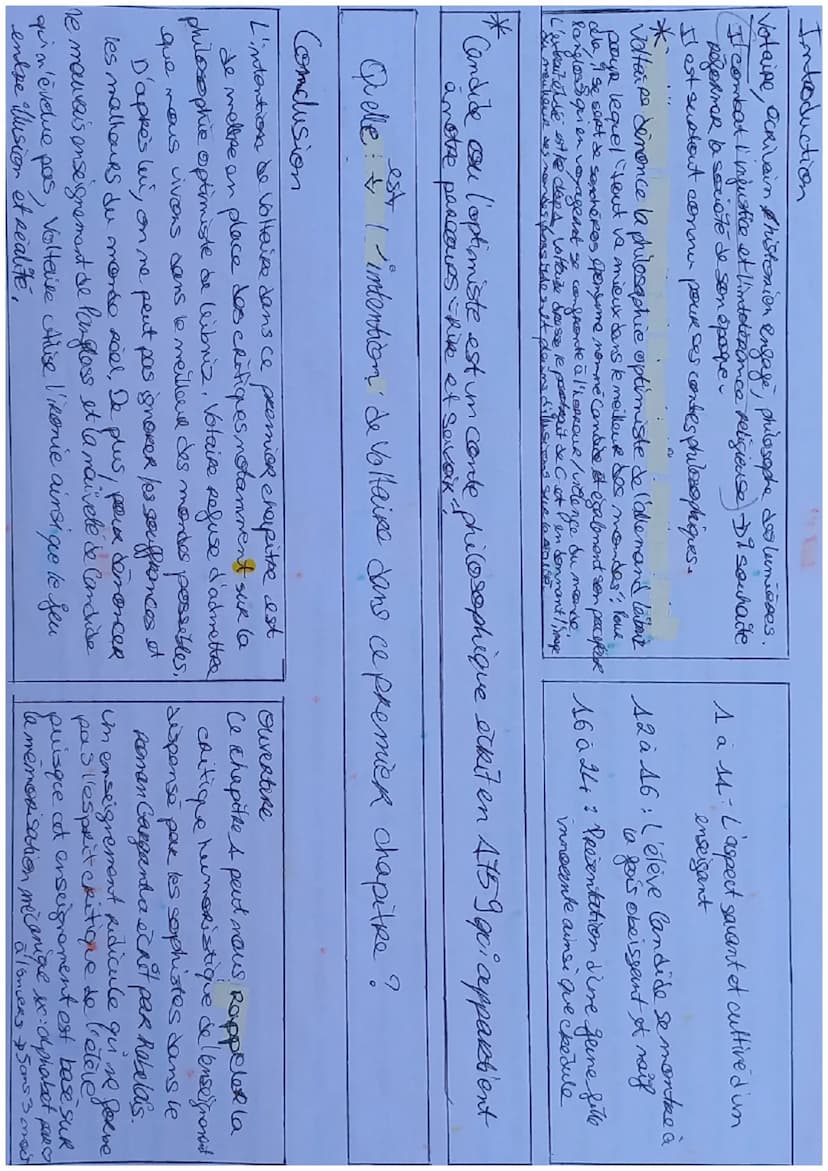 Introduction
Voltaire, écrivain, historien engagé, philosophe des lumières.
Il combat l'injustice et l'intolérance religieuse → Il souhaite
réformer la société de son époque.
Il est surtout connu pour ses contes philosophiques.
* Voltaire dénonce la philosophie optimiste de l'allemand Leibniz
pour lequel "tout va mieux dans le meilleur des mondes". Pour
cela, il se sert de son héros éponyme nommé Candide et également son précepteur
Pangloss qui en voyageant se confronte à l'horreur / violence du monde.
1 à 11 : L'aspect savant et cultivé d'un
enseignant
12 à 16 : L'élève Candide se montre à
la fois obéissant et naïf
16 à 24 : Présentation d'une jeune fille
innocente ainsi que crédule
* Candide ou l'optimiste est un conte philosophique écrit en 1759 qui appartient
à notre parcours : Rire et savoir.
Quelle est l'intention de Voltaire dans ce premier chapitre ?
Conclusion
L'intention de Voltaire dans ce premier chapitre est
de mettre en place des critiques notamment sur la
philosophie optimiste de Leibniz. Voltaire refuse d'admettre
que nous vivons dans le meilleur des mondes possibles.
D'après lui, on ne peut pas ignorer les souffrances et
les malheurs du monde réel. De plus, pour dénoncer
le mauvais enseignement de Pangloss et la naïveté de Candide
qui n'évolue pas, Voltaire utilise l'ironie ainsi que le jeu
entre illusion et réalité.
Ouverture
Ce chapitre 1 peut nous rappeler la
critique humoristique de l'enseignement
dispensé par les sophistes dans le
roman Gargantua écrit par Rabelais.
Un enseignement ridicule qui ne forme
pas l'esprit critique de l'élève
puisque cet enseignement est basé sur
la mémorisation mécanique